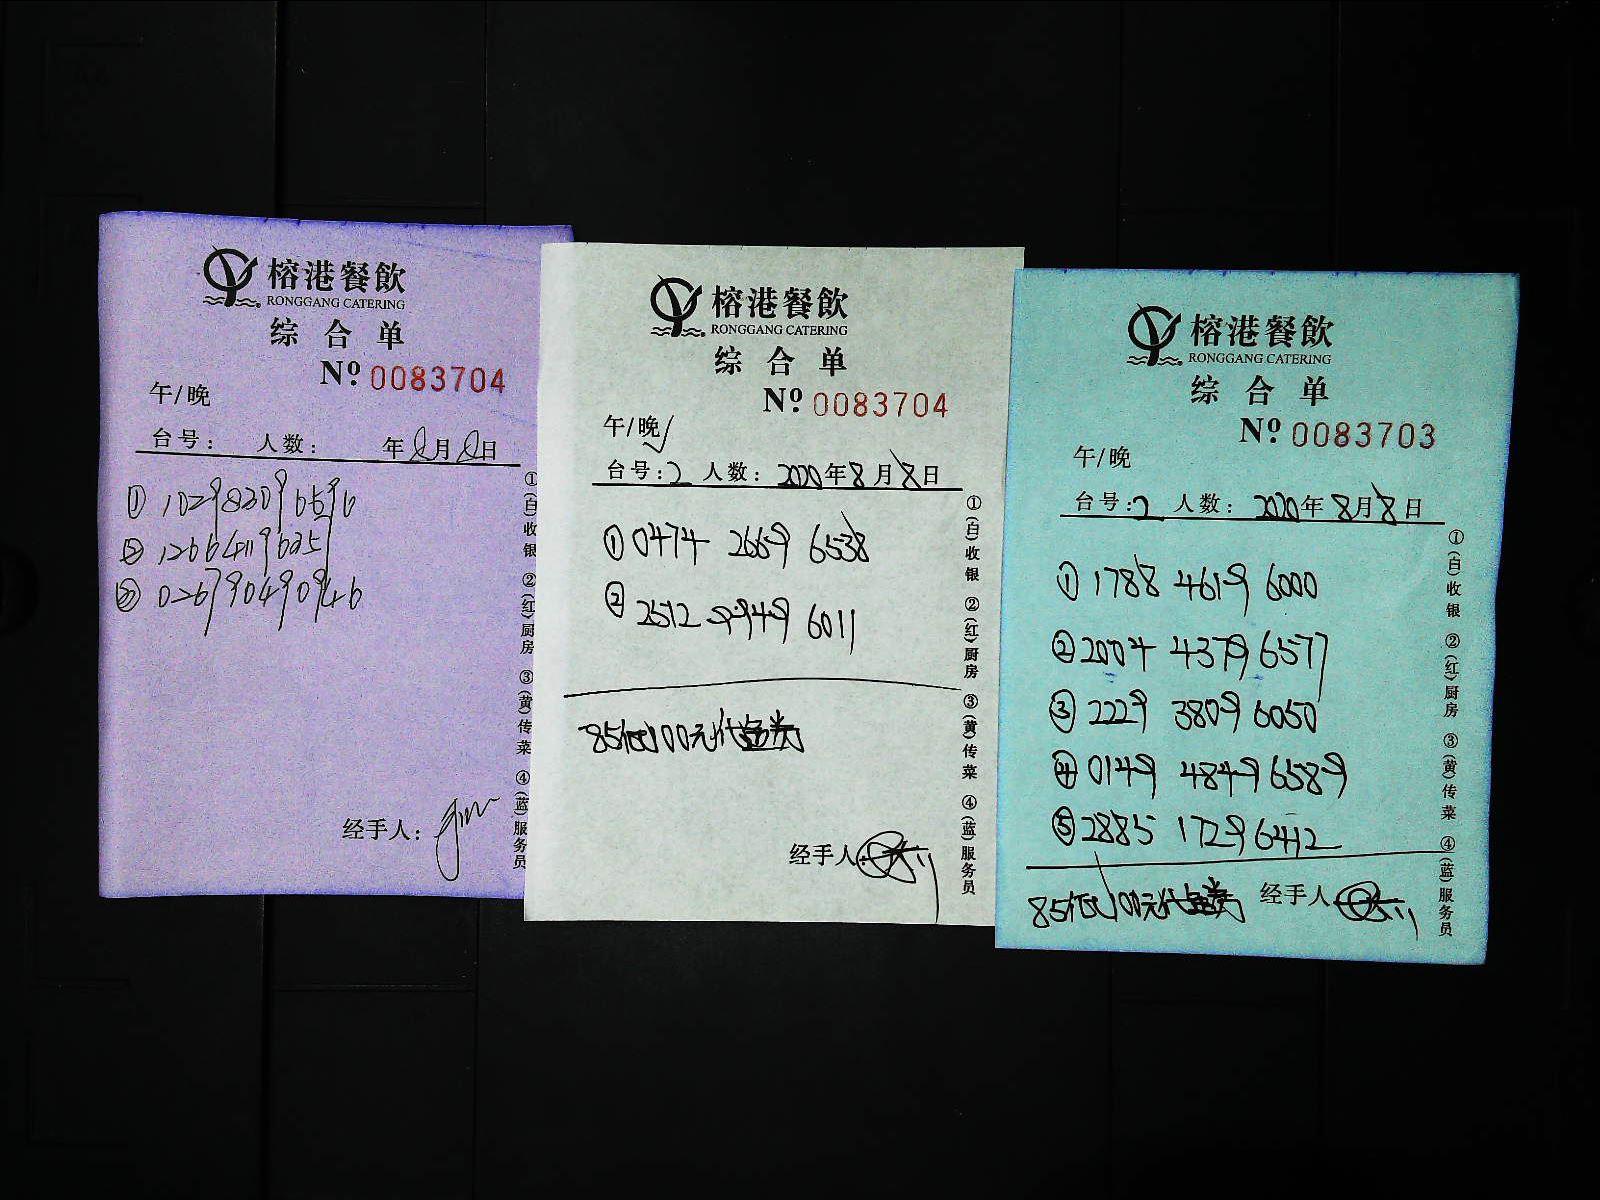 榕港餐飲
RONGGANG CATERING
综合单
Nº 0083704
午/晚
台号: 人数: 年8月8日
① 102983096596
② 126641196251
③ 026790490946
经手人:
①(白)收银 ②(红)厨房 ③(黄)传菜 ④(蓝)服务员
榕港餐飲
RONGGANG CATERING
综合单
Nº 0083704
午/晚√
台号:2 人数: 2020年8月8日
① 0474 2669 6538
② 2512 9949 6011
85抵100元代金券
经手人
①(白)收银 ②(红)厨房 ③(黄)传菜 ④(蓝)服务员
榕港餐飲
RONGGANG CATERING
综合单
Nº 0083703
午/晚
台号:2 人数: 2020年8月8日
① 1788 4619 6000
② 2004 4379 6577
③ 2229 3809 6050
④ 0149 4849 6589
⑤ 2885 1729 6412
85抵100元代金券 经手人
①(白)收银 ②(红)厨房 ③(黄)传菜 ④(蓝)服务员